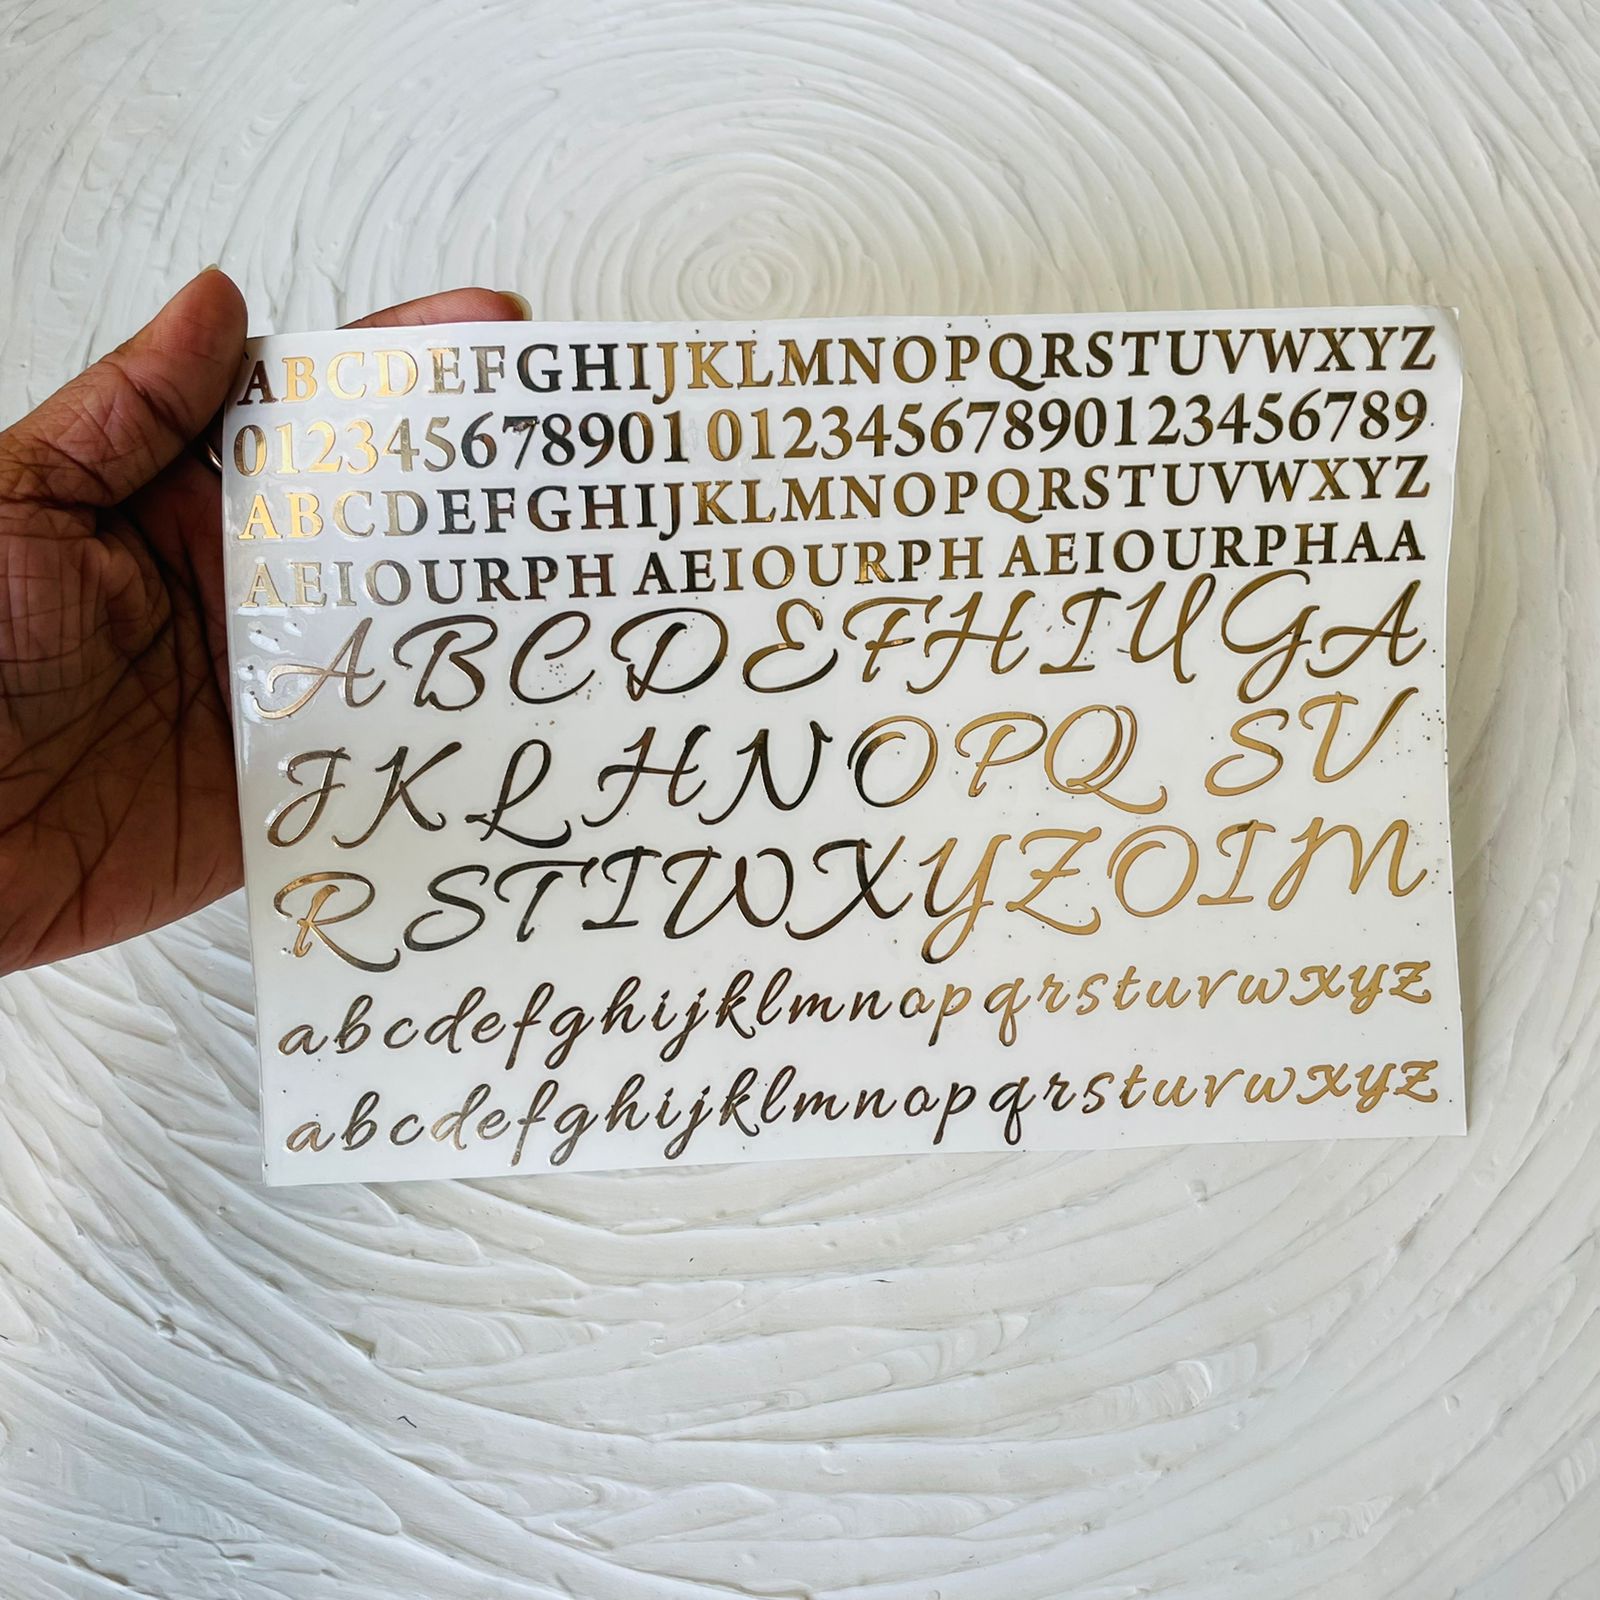 ABCDEFGHIJKLMNOPQRSTUVWXYZ
012345678901 01234567890123456789
ABCDEFGHIJKLMNOPQRSTUVWXYZ
AEIOURPH AEIOURPH AEIOURPHAA
ABCDEFHIUGA
JKLHNOPQ SV
RSTIWXYZOIM
abcdefghijklmnopqrstuvwxyz
abcdefghijklmnopqrstuvwxyz